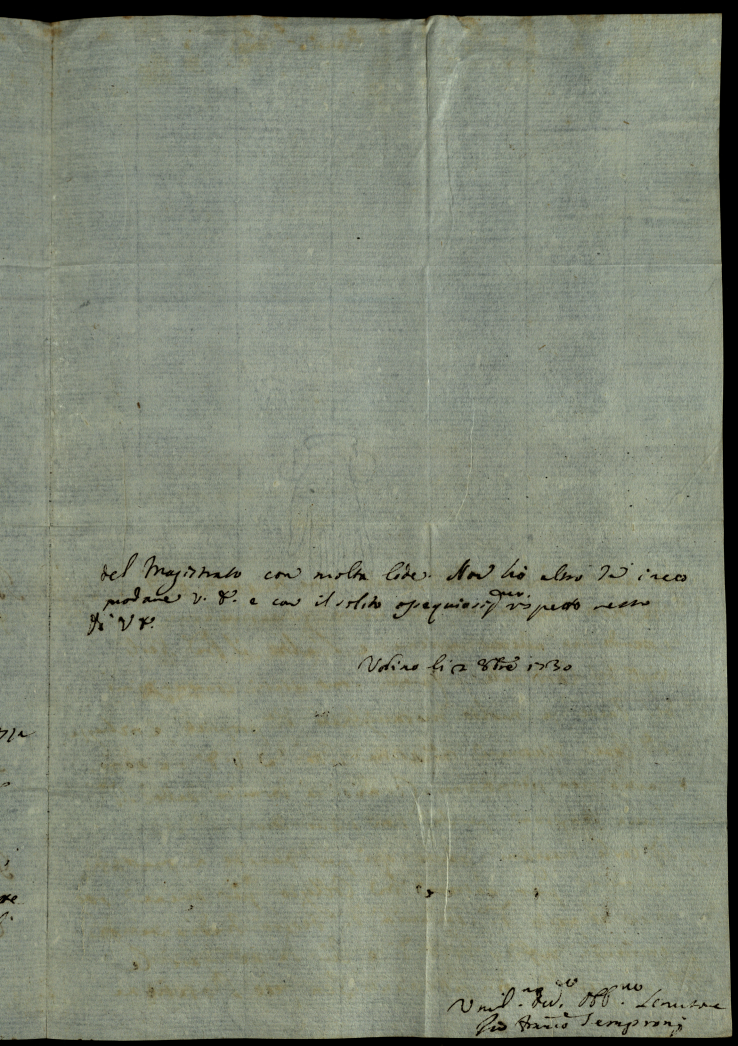 del Magistrato con molta lode. Non ho altro da inco
modare V. S. e con il solito ossequiosiss.mo rispetto resto
di V S.
Udine li 2 8bre 1730
Umil.mo dev.mo obb.mo Servitore
Gio Franc.o Sempronj